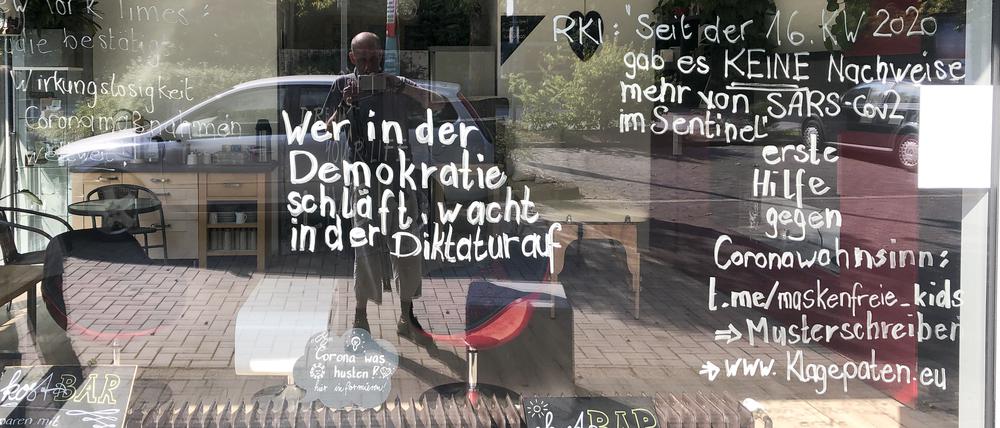 ew York Times:
die bestätig
Wirkungslosigkeit
Coronamaßnahmen
weltweit!
Wer in der
Demokratie
schläft, wacht
in der Diktatur auf
RKI: "Seit der 16. KW 2020
gab es KEINE Nachweise
mehr von SARS-Cov2
im Sentinel"
erste
Hilfe
gegen
Coronawahnsinn:
t.me/maskenfreie_kids
⇒ Musterschreiben
→ www.Klagepaten.eu
Corona was
husten?
hier informieren!
kostBAR
aren mit
BAR